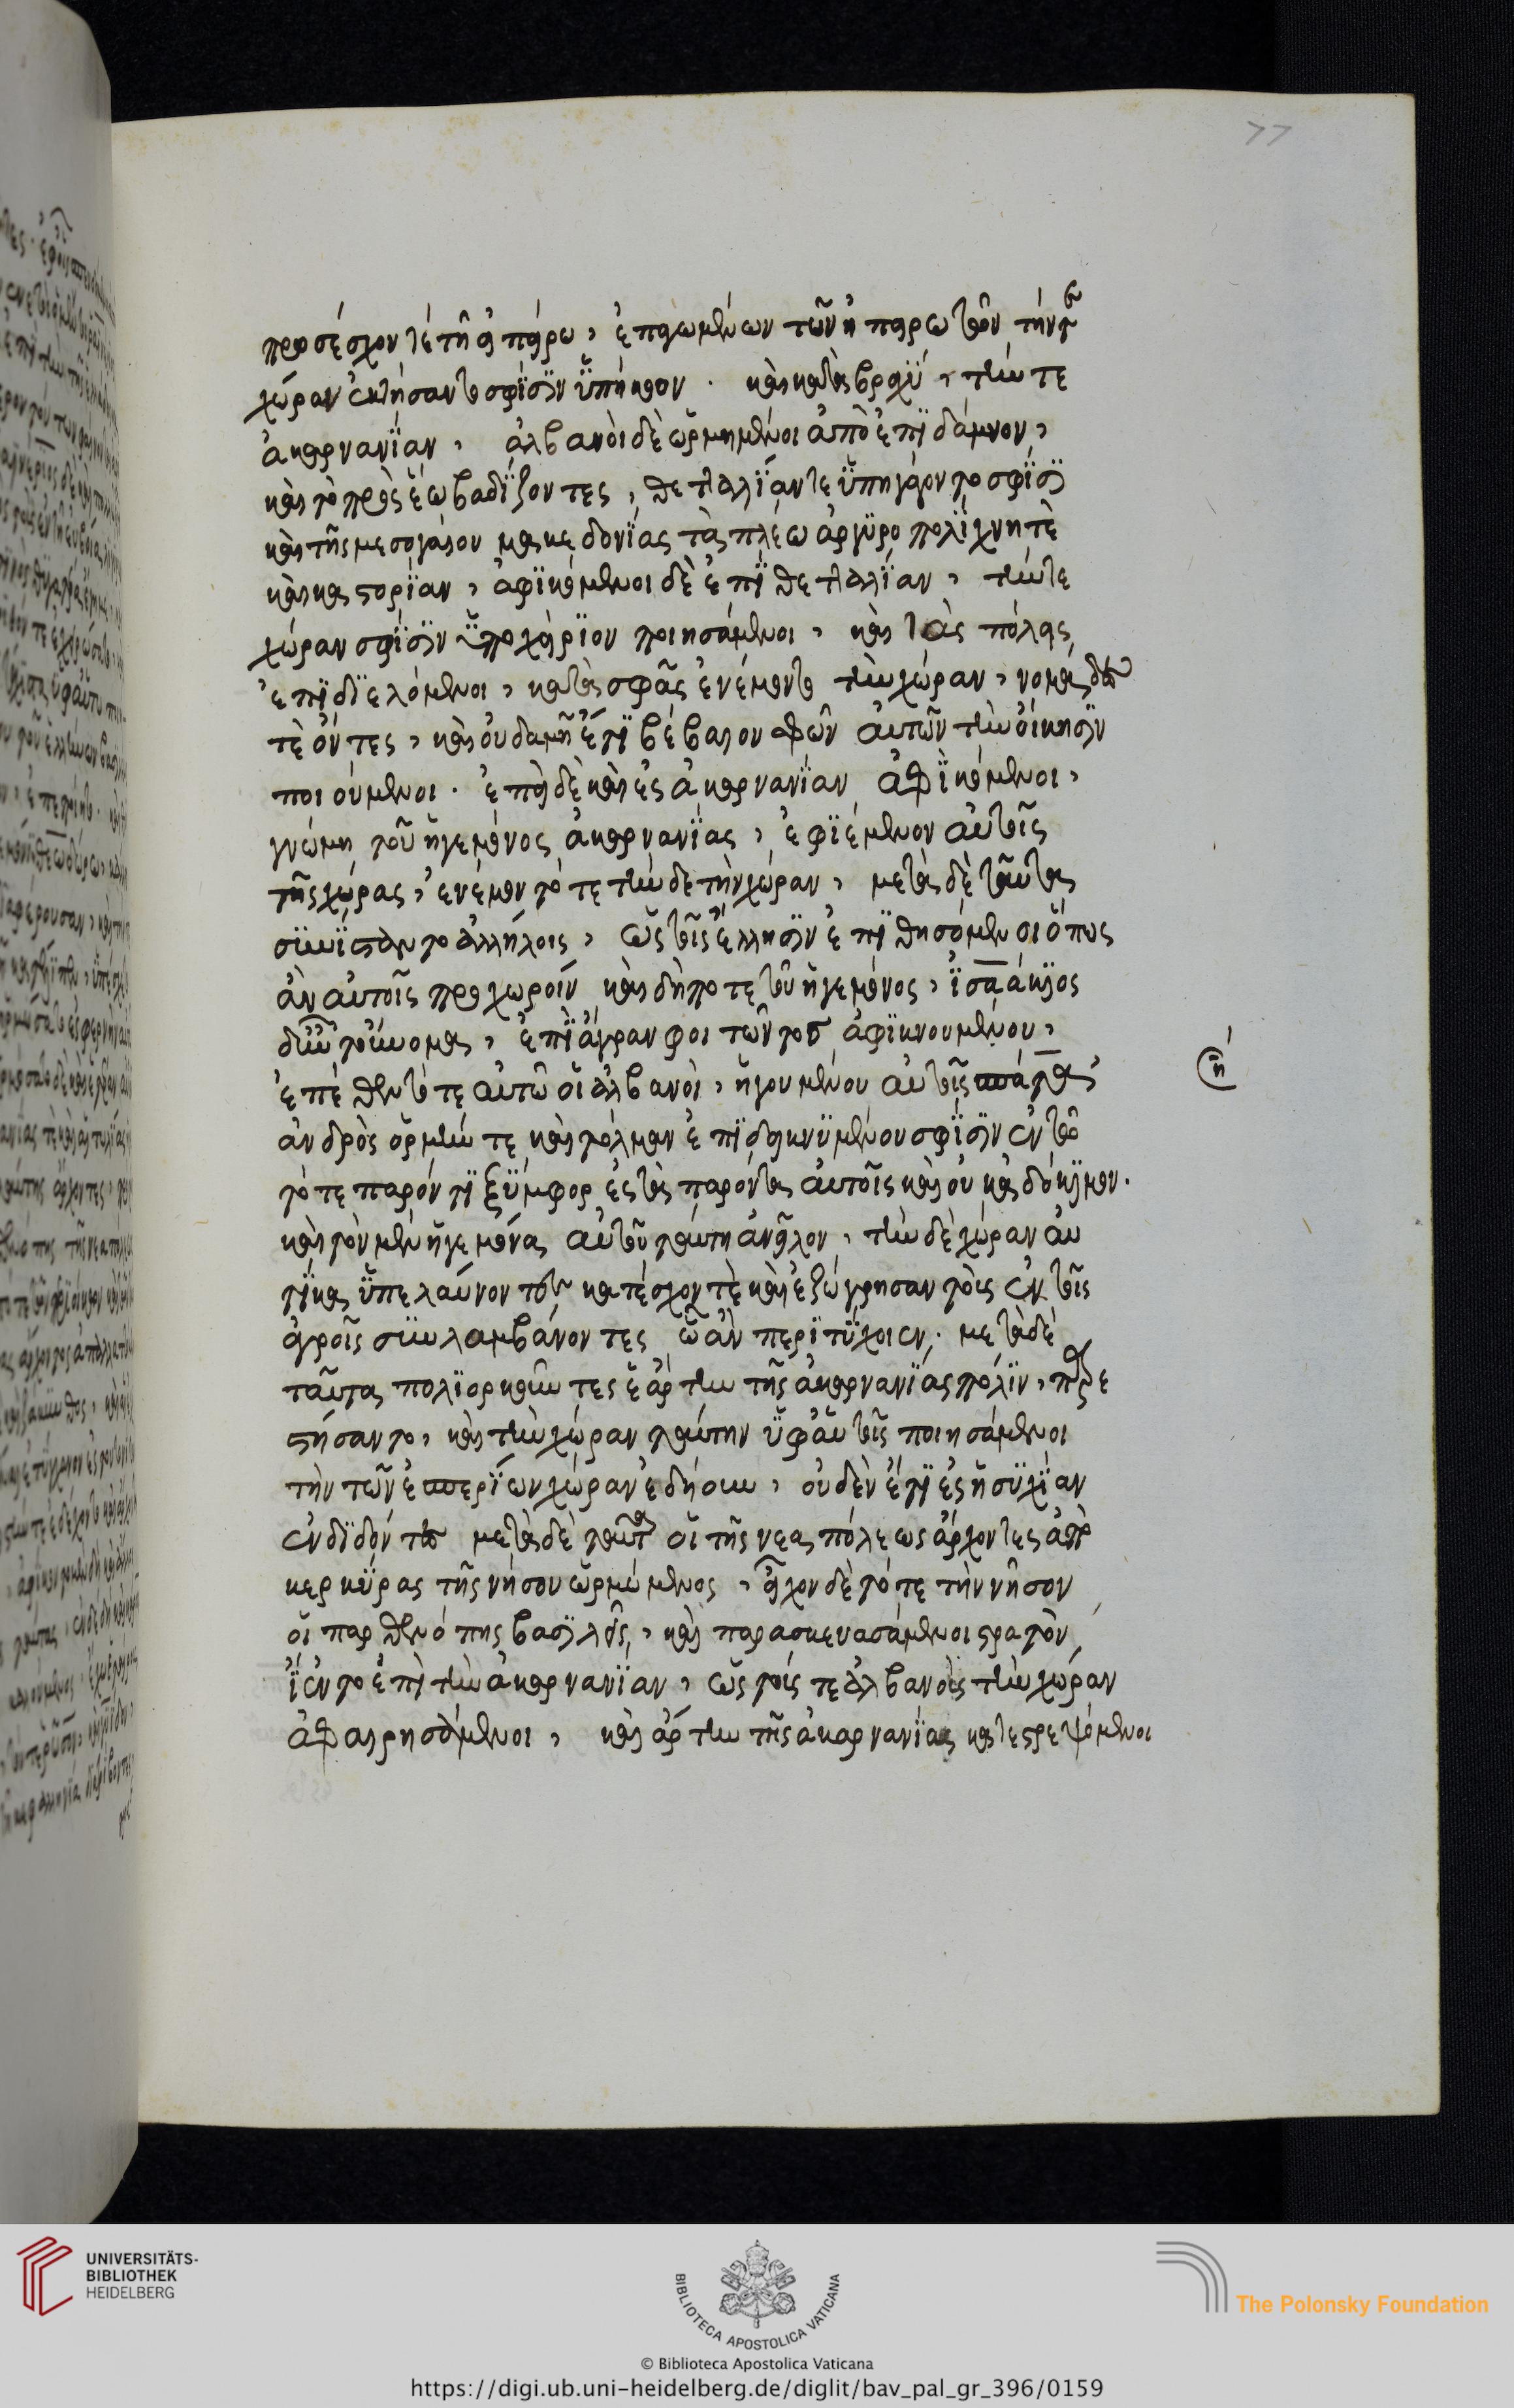 προσέσχον τέ τῆ ἠπείρω, ἐπαγωμένων τῶν ἠπειρωτῶν, τήν τε
χώραν ἐκτήσαντο σφΐσϊν ὕπήκοον. καὶ κατὰ βραχὺ, τήν τε
ἀκαρνανΐαν, ἀλβανοὶ δὲ ὡρμημένοι ἀπὸ ἐπϊδάμνου,
καὶ τὸ πρὸς ἕω βαδΐζοντες, θετταλΐαν τε ὕπηγάγοντο σφΐσϊ
καὶ τῆς μεσογαίου μακεδονΐας τὰ πλέω ἀργϋροπολΐχνη τὲ
καὶ καστορΐαν, ἀφϊκόμενοι δὲ ἐπΐ θετταλΐαν, τήν τε
χώραν σφΐσϊν ὕποχείρϊον ποιησάμενοι, καὶ τὰς πόλεις
ἐπϊδϊελόμενοι, κατὰ σφᾶς ἐνέμοντο τὴν χώραν, νομάδες
τὲ ὄντες, καὶ οὐδαμῆ ἔτϊ βέβαιον σφῶν αὐτῶν τὴν οἴκησϊν
ποιούμενοι. ἐπεὶ δὲ καὶ ἐς ἀκαρνανΐαν ἀφϊκόμενοι,
γνώμη τοῦ ἡγεμόνος ἀκαρνανΐας, ἐφϊεμένου αὐτοῖς
τῆς χώρας, ἐνέμοντό τε τήνδε τὴν χώραν, μετὰ δὲ ταῦτα
σϋνΐσταντο ἀλλήλοις, ὡς τοῖς ἕλλησϊν ἐπϊθησόμενοι ὅπως
ἂν αὐτοῖς προχωροίη καὶ δήποτε τοῦ ἡγεμόνος, ἰσαάκϊος
δ' ἦν τοὔνομα, ἐπΐ ἄγραν φοιτῶντος ἀφϊκνουμένου,
ἐπέθεντό τε αὐτῶ οἱ ἀλβανοὶ, ἡγουμένου αὐτοῖς σπάτα
ἀνδρὸς ὁρμήν τε καὶ τόλμαν ἐπϊδεικνϋμένου σφΐσϊν ἐν τῶ
τότε παρόντϊ ξϋμφορ ἐς τὰ παρόντα αὐτοῖς καὶ οὐκ ἀδόκϊμον.
καὶ τὸν μὲν ἡγεμόνα αὐτοῦ ταύτη ἀνεῖλον, τὴν δὲ χώραν αὐ
τΐκα ὕπελαύνοντες κατέσχον τὲ καὶ ἐζώγρησαν τοὺς ἐν τοῖς
ἀγροῖς σϋλλαμβάνοντες ὧ ἂν περϊτΰχοιεν. μετὰ δὲ
ταῦτα πολϊορκοῦντες ἕάρτην τῆς ἀκαρνανΐας πόλϊν, παρε
στήσαντο, καὶ τὴν χώραν ταύτην ὕφ' αὑτοῖς ποιησάμενοι
τὴν τῶν ἑσπερΐων χώραν ἐδῄουν, οὐδὲν ἔτϊ ἐς ἡσϋχΐαν
ἐνδϊδόντες μετὰ δὲ ταῦτα οἱ τῆς νεαπόλεως ἄρχοντες ἀπὸ
κερκΰρας τῆς νήσου ὡρμώμενος, εἶχον δὲ τότε τὴν νῆσον
οἱ παρθενόπης βασϊλεῖς, καὶ παρασκευασάμενοι στρατὸν,
ΐεντο ἐπὶ τὴν ἀκαρνανΐαν, ὡς τούς τε ἀλβανοὺς τὴν χώραν
ἀφαιρησόμενοι, καὶ ἄρτην τῆς ἀκαρνανΐας καταστρεψόμενοι
η
77
UNIVERSITÄTS-
BIBLIOTHEK
HEIDELBERG
BIBLIOTECA APOSTOLICA VATICANA
The Polonsky Foundation
© Biblioteca Apostolica Vaticana
https://digi.ub.uni-heidelberg.de/diglit/bav_pal_gr_396/0159